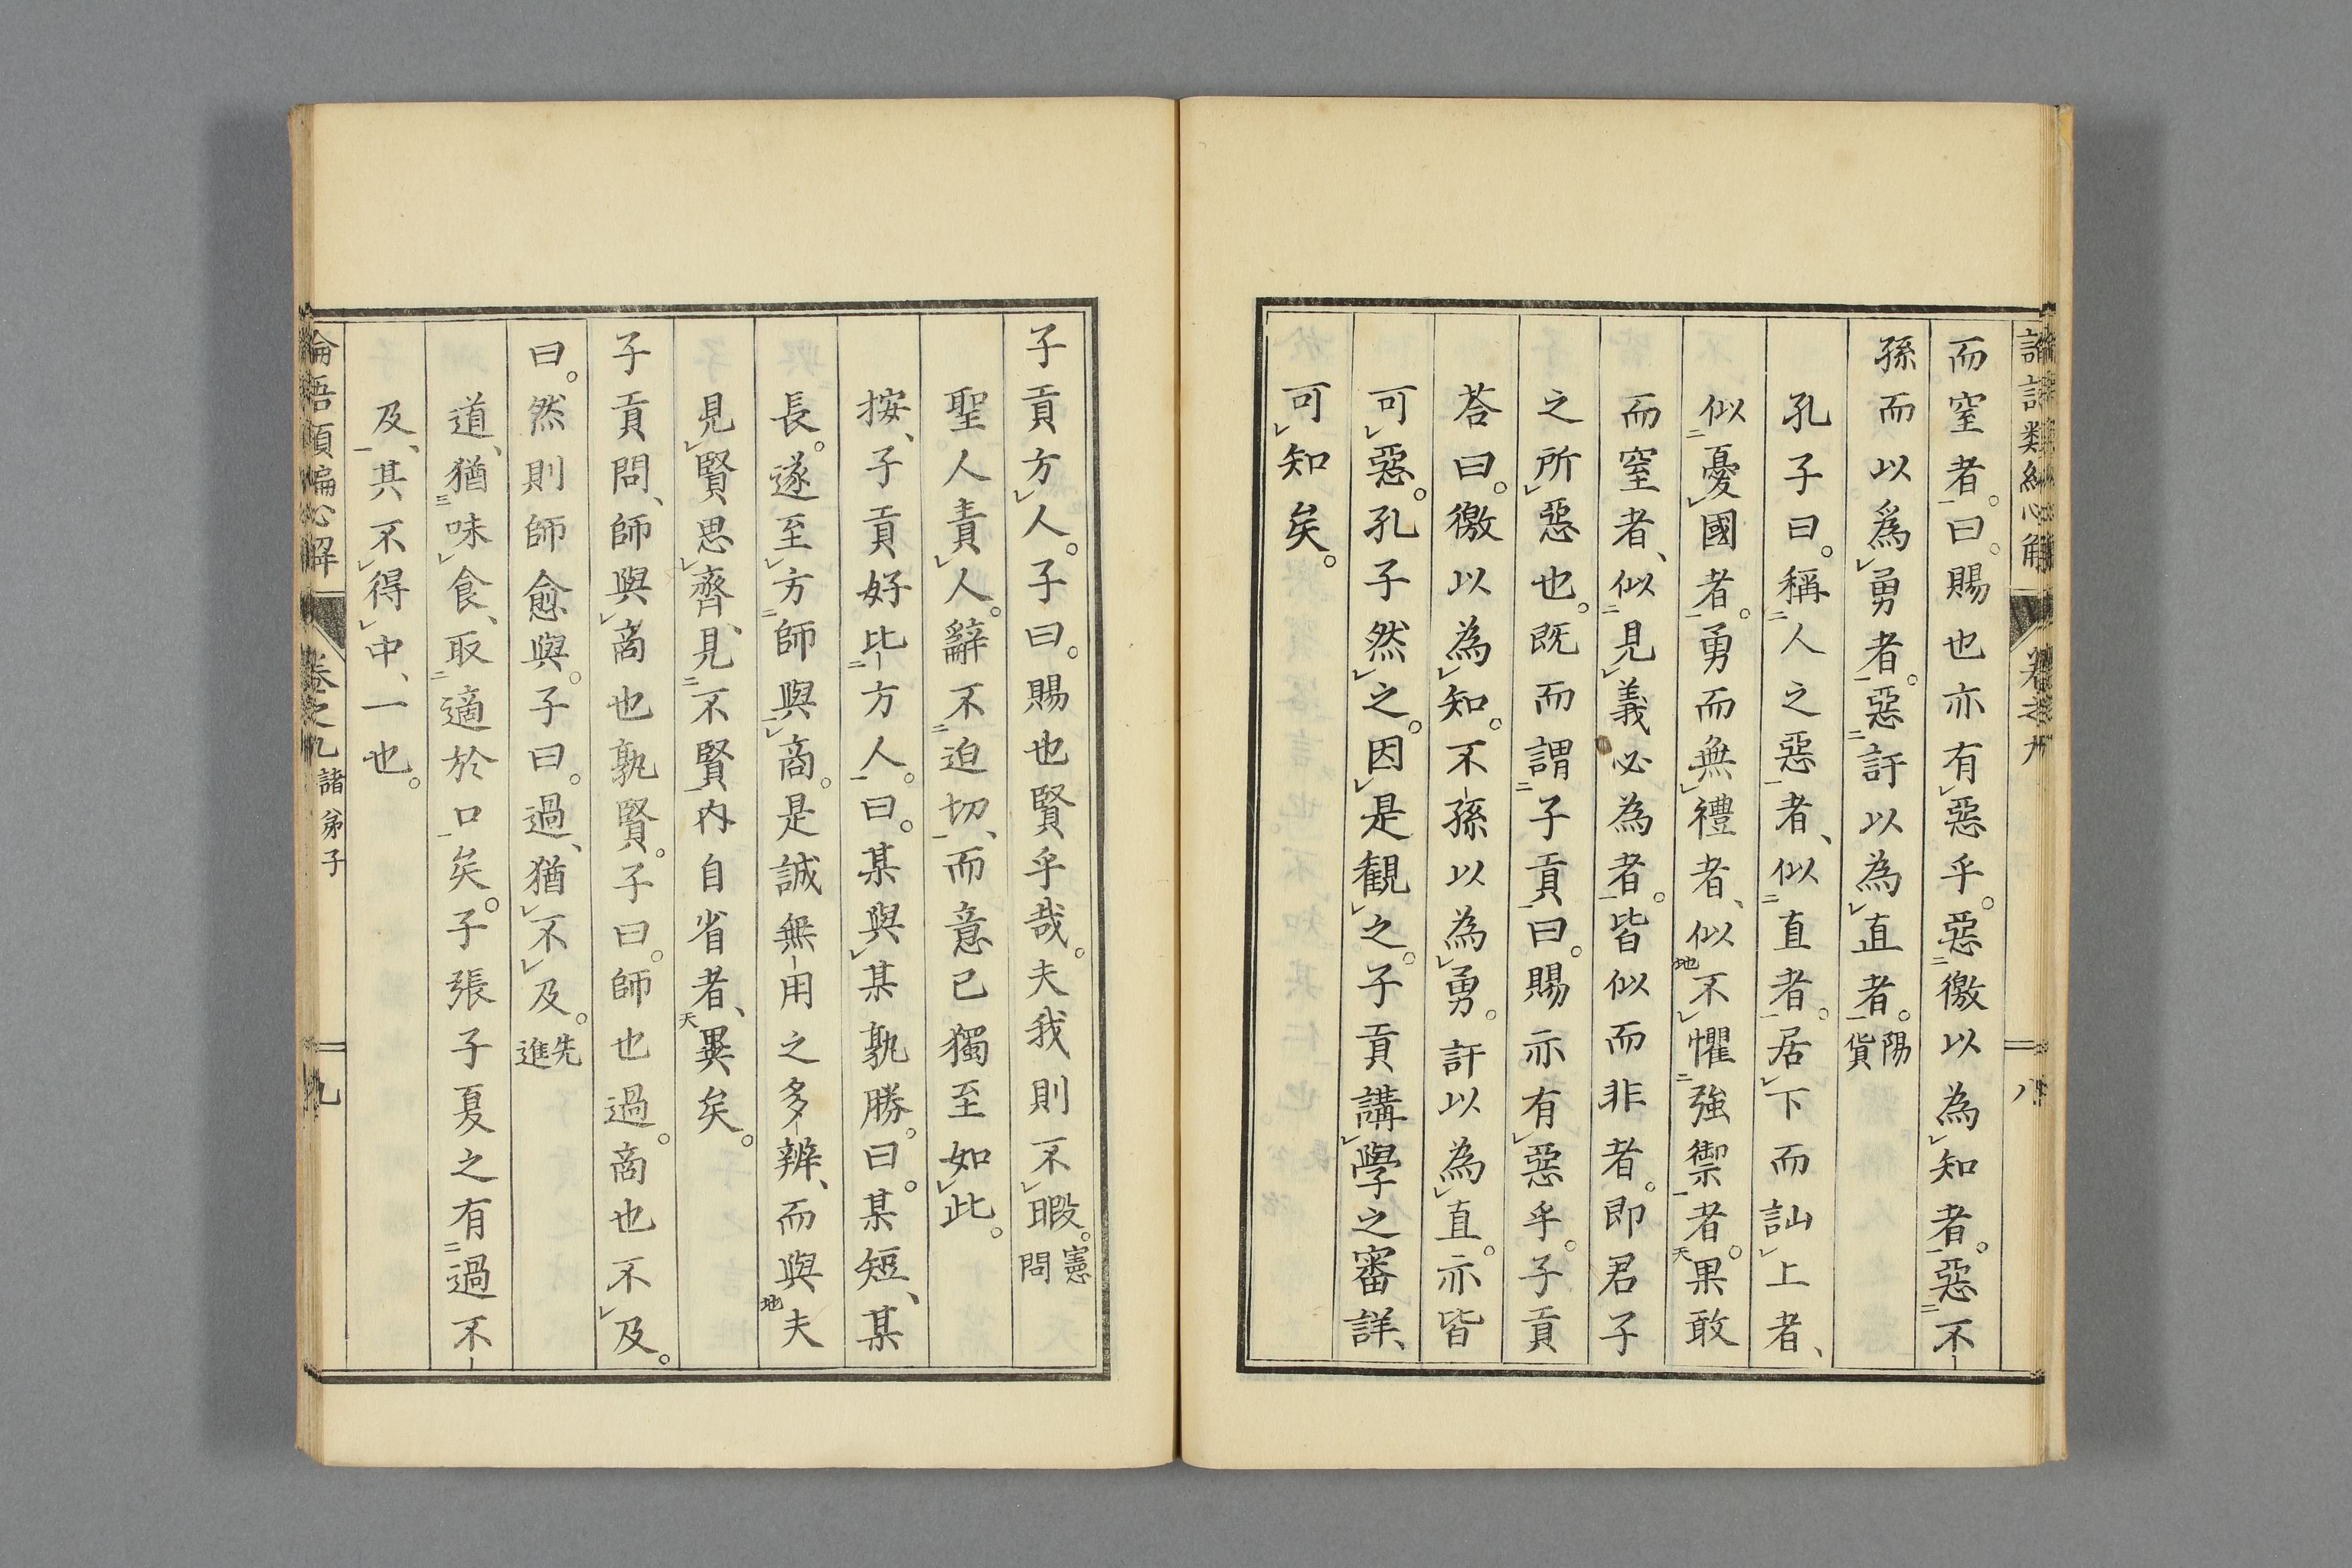 而窒者。曰。賜也亦有惡乎。惡徼以為知者。惡不
孫而以爲勇者。惡訐以為直者。陽貨
孔子曰。稱人之惡者、似直者。居下而訕上者、
似憂國者。勇而無禮者、似不懼強禦者。果敢
而窒者、似見義必為者。皆似而非者。即君子
之所惡也。既而謂子貢曰。賜亦有惡乎。子貢
荅曰。徼以為知。不孫以為勇。訐以為直。亦皆
可惡。孔子然之。因是観之。子貢講學之審詳、
可知矣。
子貢方人。子曰。賜也賢乎哉。夫我則不暇。憲問
聖人責人。辭不迫切、而意已獨至如此。
按、子貢好比方人。曰。某與某孰勝。曰。某短、某
長。遂至方師與商。是誠無用之多辨、而與夫
見賢思齊、見不賢内自省者、異矣。
子貢問、師與商也孰賢。子曰。師也過。商也不及。
曰。然則師愈與。子曰。過、猶不及。先進
道、猶味食、取適於口矣。子張子夏之有過不
及、其不得中、一也。
卷之九 諸弟子
九